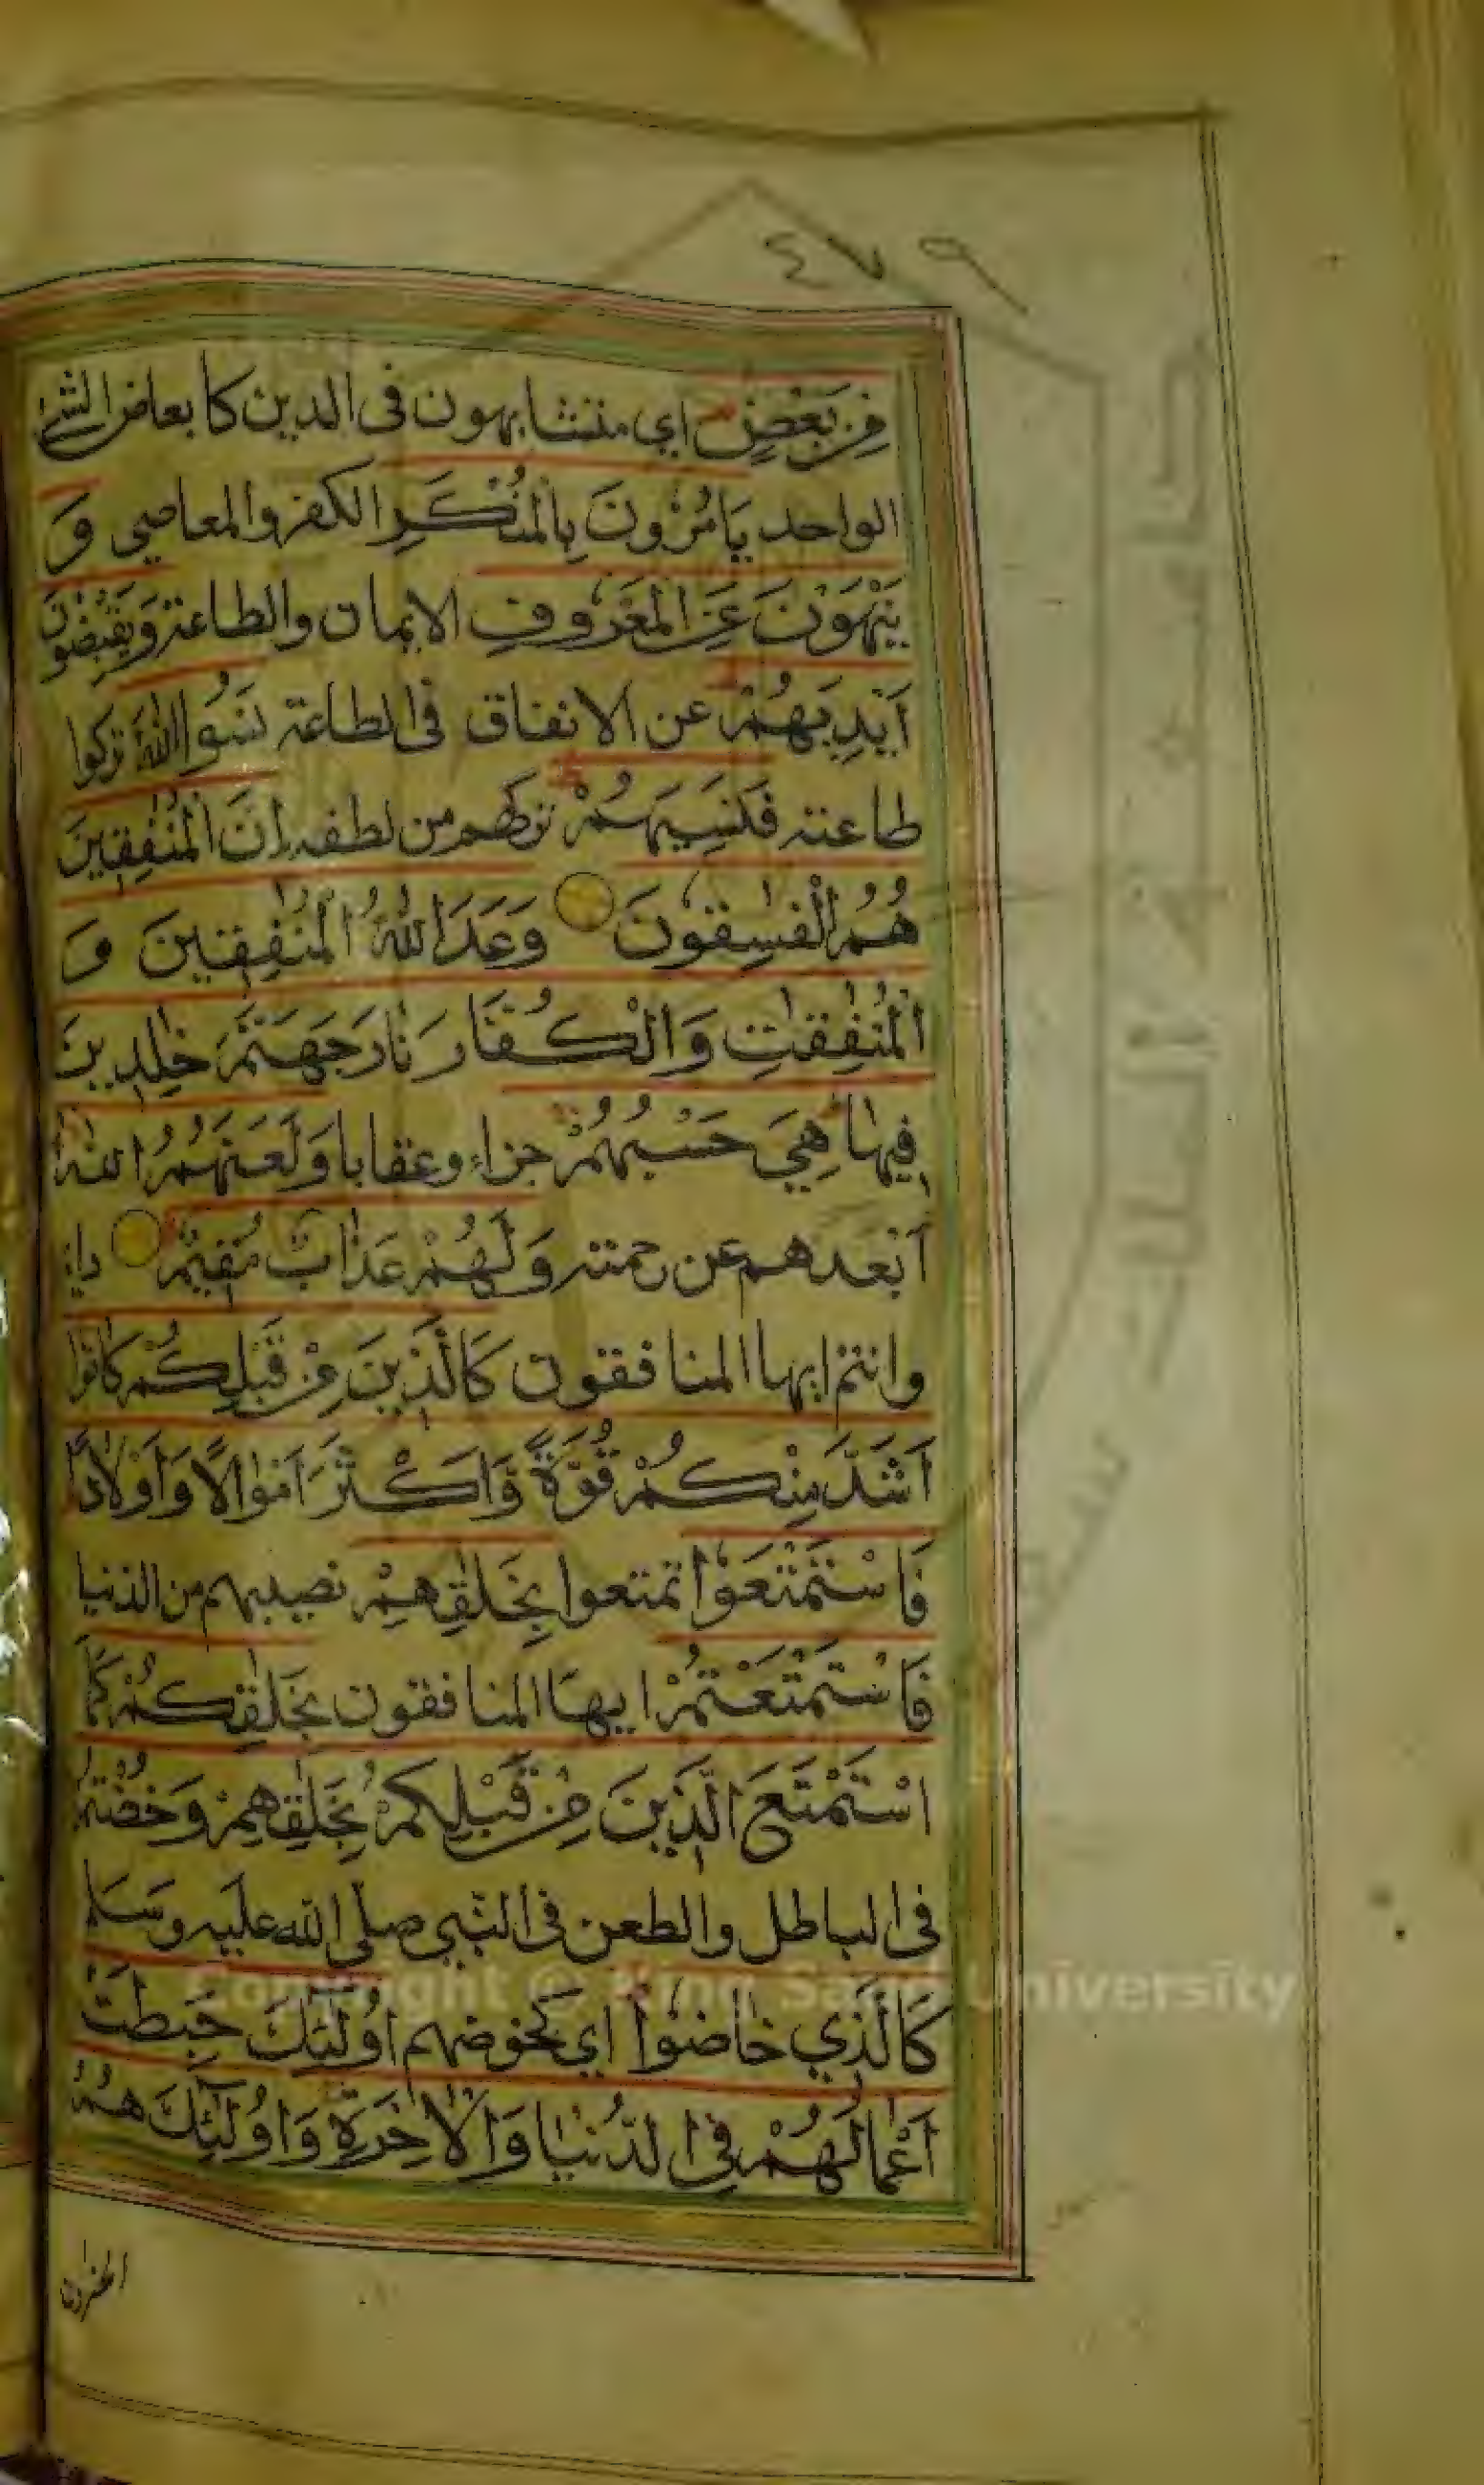 ٤٧٩
مِنْ بَعْضٍ اي متشابهون فى الدين كابعاض الشئ
الواحد يَأْمُرُونَ بِالْمُنْكَرِ الكفر والمعاصي وَ
يَنْهَوْنَ عَنِ الْمَعْرُوفِ الايمان والطاعة وَيَقْبِضُونَ
اَيْدِيَهُمْ عن الانفاق فى الطاعة نَسُوا اللّٰهَ تركوا
طاعته فَنَسِيَهُمْ تركهم من لطفه اِنَّ الْمُنٰفِقِينَ
هُمُ الْفٰسِقُونَ وَعَدَ اللّٰهُ الْمُنٰفِقِينَ وَ
الْمُنٰفِقٰتِ وَالْكُفَّارَ نَارَ جَهَنَّمَ خٰلِدِينَ
فِيهَا هِيَ حَسْبُهُمْ جزاء وعقابا وَلَعَنَهُمُ اللّٰهُ
اَبْعَدهم عن رحمته وَلَهُمْ عَذَابٌ مُقِيمٌ دايم
وانتم ايها المنافقون كَالَّذِينَ مِنْ قَبْلِكُمْ كَانُوا
اَشَدَّ مِنْكُمْ قُوَّةً وَّاَكْثَرَ اَمْوَالًا وَاَوْلَادًا
فَاسْتَمْتَعُوْا تمتعوا بِخَلٰقِهِمْ نصيبهم من الدنيا
فَاسْتَمْتَعْتُمْ ايها المنافقون بِخَلٰقِكُمْ كَمَا
اسْتَمْتَعَ الَّذِينَ مِنْ قَبْلِكُمْ بِخَلٰقِهِمْ وَخُضْتُمْ
فى الباطل والطعن فى النبي صلى الله عليه وسلم
كَالَّذِي خَاضُوْا اي كخوضهم اُولٰٓئِكَ حَبِطَتْ
اَعْمَالُهُمْ فِى الدُّنْيَا وَالْاٰخِرَةِ وَاُولٰٓئِكَ هُمُ
الخسرون
Copyright © King Saud University